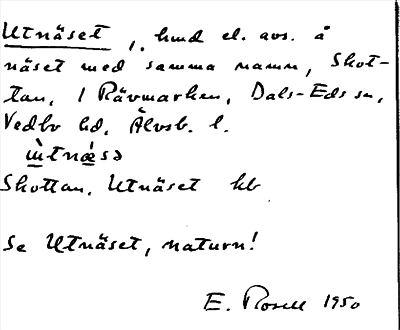 Utnäset, l. hmd el. avs. å
näset med samma namn, Skot-
tan, i Rävmarken, Dals-Eds sn,
Vedbo hd, Älvsb. l.
ù̱tnǽ̱sə
Skottan, Utnäset kb
Se Utnäset, naturn!
E. Rosell 1950